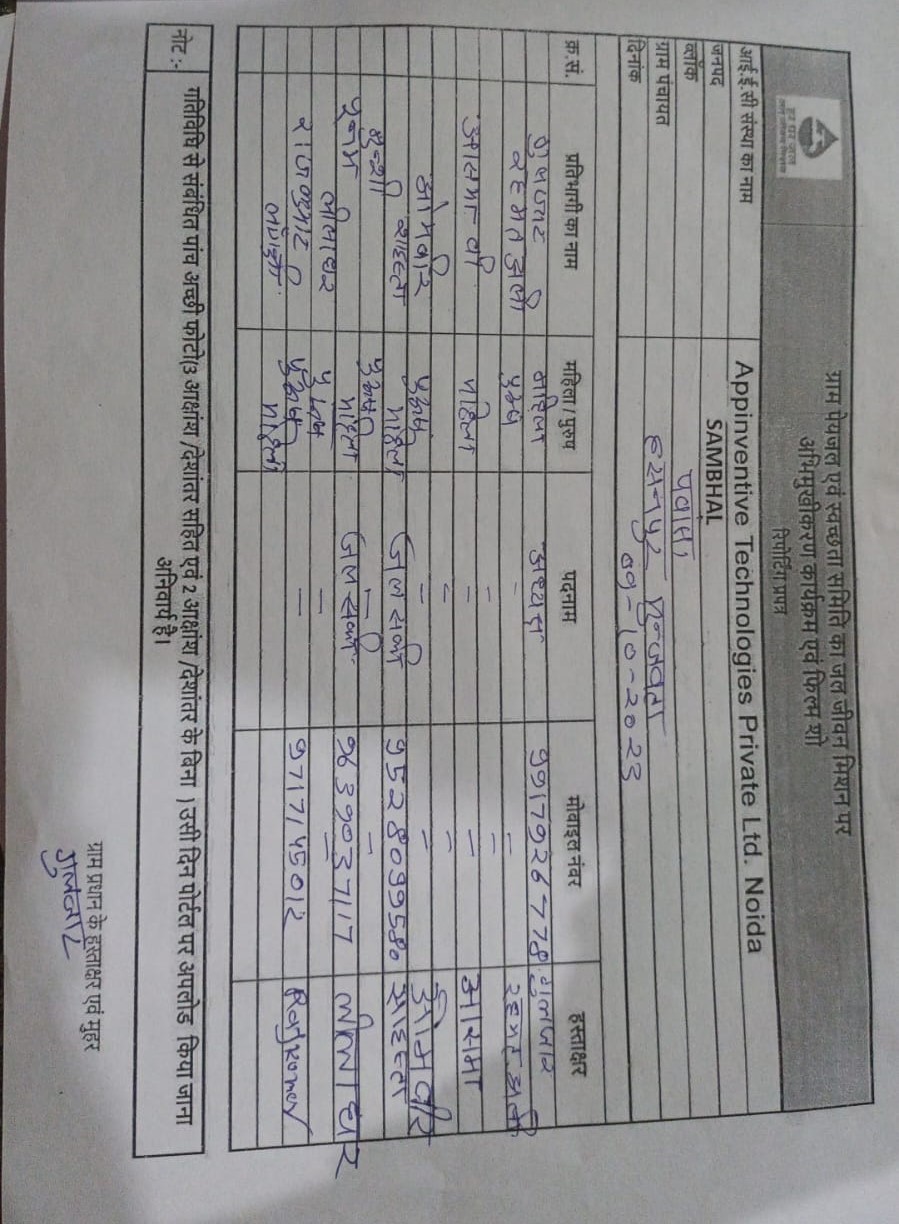 ग्राम पेयजल एवं स्वच्छता समिति का जल जीवन मिशन पर
अभिमुखीकरण कार्यक्रम एवं फिल्म शो
रिपोर्टिंग प्रपत्र
हर घर जल
आई.ई.सी संस्था का नाम Appinventive Technologies Private Ltd. Noida
जनपद SAMBHAL
ब्लॉक पवांसा
ग्राम पंचायत
दिनांक 09-10-2023
क्र.सं. प्रतिभागी का नाम महिला/पुरुष पदनाम मोबाइल नंबर हस्ताक्षर
गुलजार महिला अध्यक्ष 9917926778 गुलजार
रहमत अली पुरुष - = रहमत अली
आसमा बी महिला = = आसमा
ओमवीर पुरुष = = ओमवीर
मुन्नी महिला
शाइस्ता जल सखी 9528099580 शाइस्ता
पूनम महिला जल सखी 9639037117
लीलाधर पुरुष - = लीलाधर
राजकुमार पुरुष - 9717145012 Rajkumar
महिला
नोट :- गतिविधि से संबंधित पांच अच्छी फोटो(3 आक्षांश /देशांतर सहित एवं 2 आक्षांश /देशांतर के बिना )उसी दिन पोर्टल पर अपलोड किया जाना
अनिवार्य है।
ग्राम प्रधान के हस्ताक्षर एवं मुहर
गुलजार